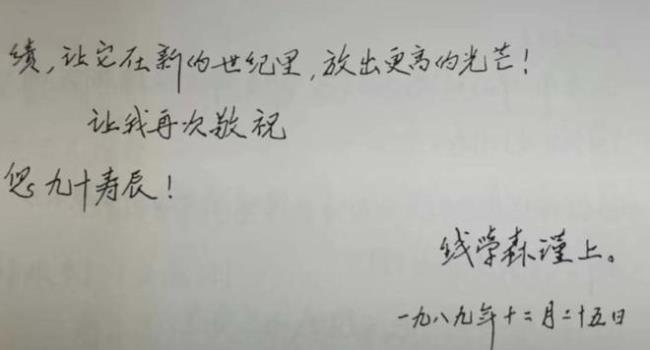 绩，让它在新的世纪里，放出更高的光芒！
让我再次敬祝
您九十寿辰！
钱学森谨上。
一九八九年十二月二十五日